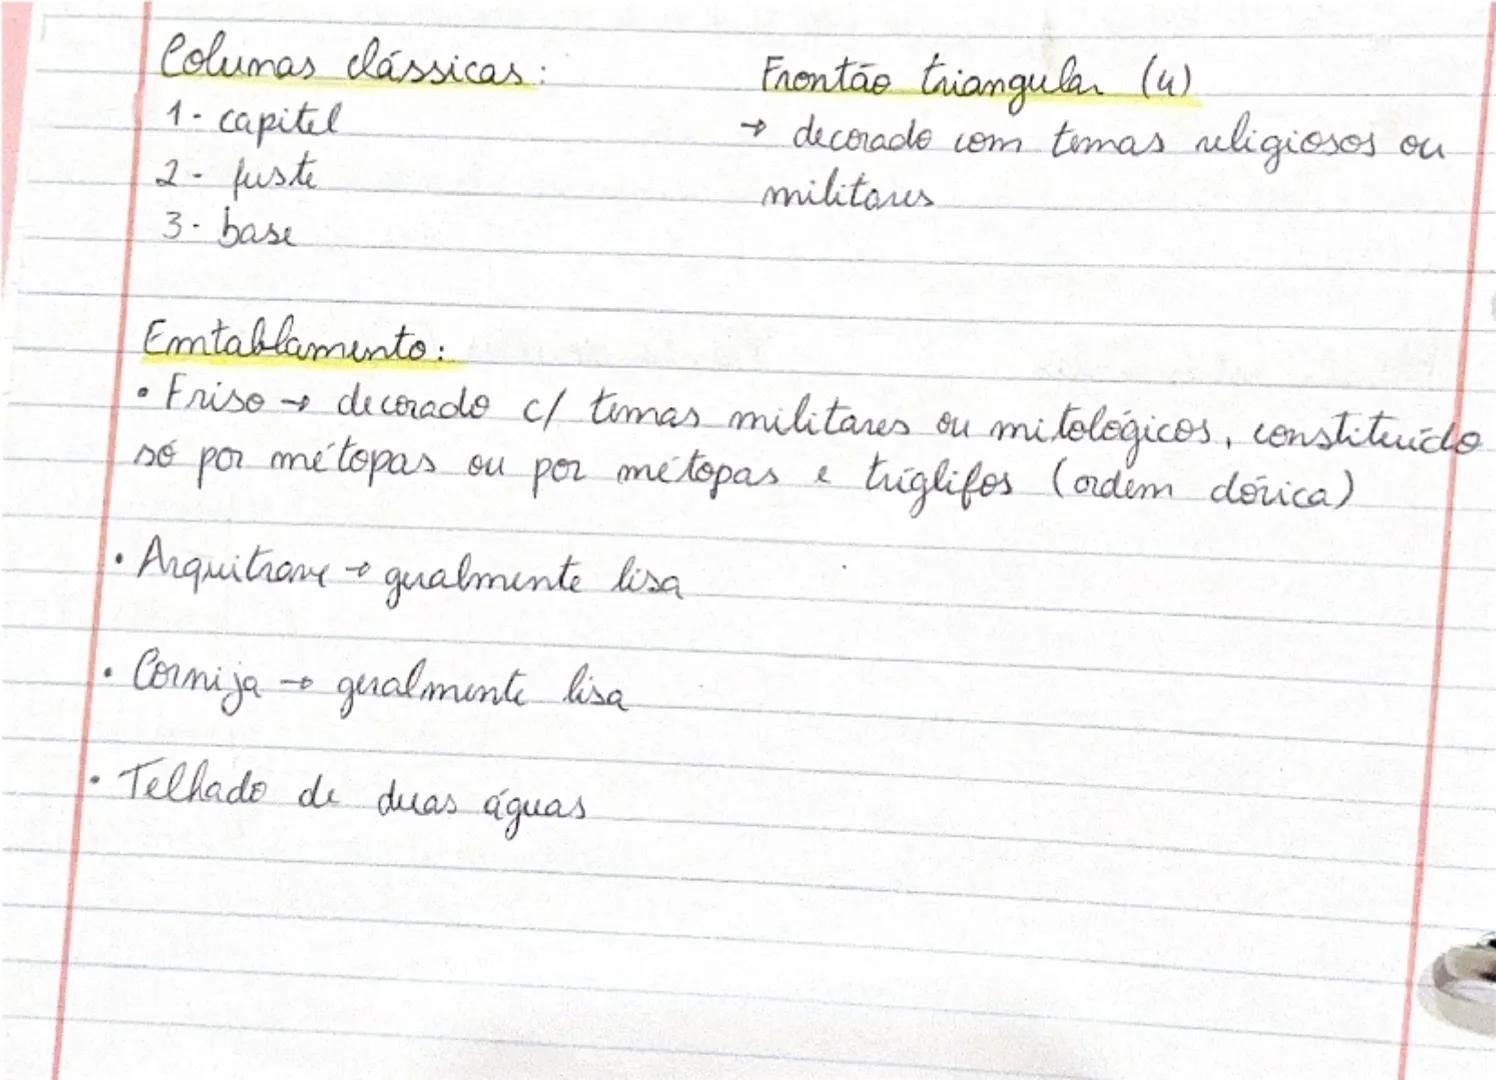 Colunas clássicas:
1- capitel
2- fuste
3- base
Frontão triangular (4)
→ decorado com temas religiosos ou
militares
Emtablamento:
• Friso → decorado c/ temas militares ou mitológicos, constituído
só por métopas ou por métopas e tríglifos (ordem dórica)
• Arquitrave → geralmente lisa
• Cornija → geralmente lisa
• Telhado de duas águas